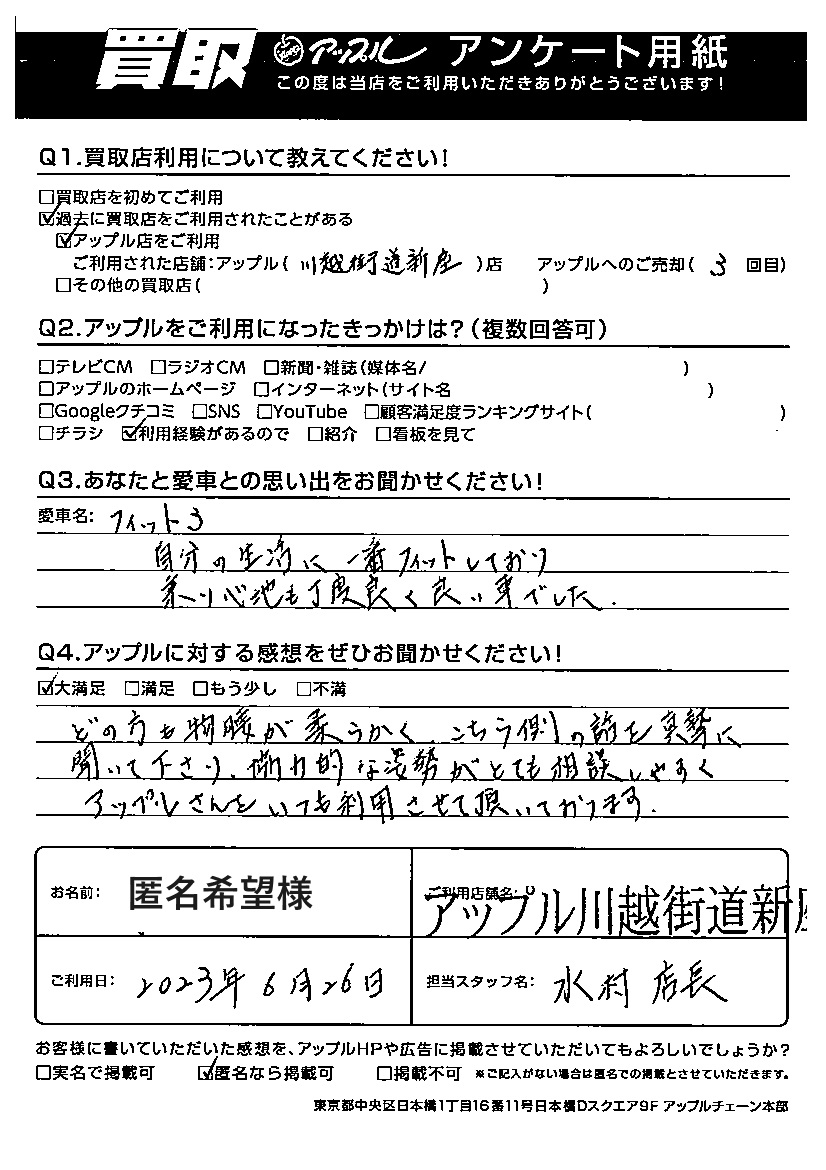 買取 アップル アンケート用紙
この度は当店をご利用いただきありがとうございます!
Q1.買取店利用について教えてください!
□買取店を初めてご利用
☑過去に買取店をご利用されたことがある
☑アップル店をご利用
ご利用された店舗:アップル( 川越街道新座 )店 アップルへのご売却( 3 回目)
□その他の買取店( )
Q2.アップルをご利用になったきっかけは?(複数回答可)
□テレビCM □ラジオCM □新聞・雑誌(媒体名/ )
□アップルのホームページ □インターネット(サイト名 )
□Googleクチコミ □SNS □YouTube □顧客満足度ランキングサイト( )
□チラシ ☑利用経験があるので □紹介 □看板を見て
Q3.あなたと愛車との思い出をお聞かせください!
愛車名: フィット3
自分の生活に一番フィットしており
乗り心地も丁度良く良い車でした.
Q4.アップルに対する感想をぜひお聞かせください!
☑大満足 □満足 □もう少し □不満
どの方も物腰が柔らかく、こちら側の話を真摯に
聞いて下さり、な姿勢がとても相談しやすく
アップルさんをいつも利用させて頂いております.
お名前: 匿名希望様
ご利用店舗名:
アップル川越街道新座
ご利用日: 2023年6月26日
担当スタッフ名: 水村 店長
お客様に書いていただいた感想を、アップルHPや広告に掲載させていただいてもよろしいでしょうか?
□実名で掲載可 ☑匿名なら掲載可 □掲載不可 ※ご記入がない場合は匿名での掲載とさせていただきます。
東京都中央区日本橋1丁目16番11号日本橋Dスクエア9F アップルチェーン本部